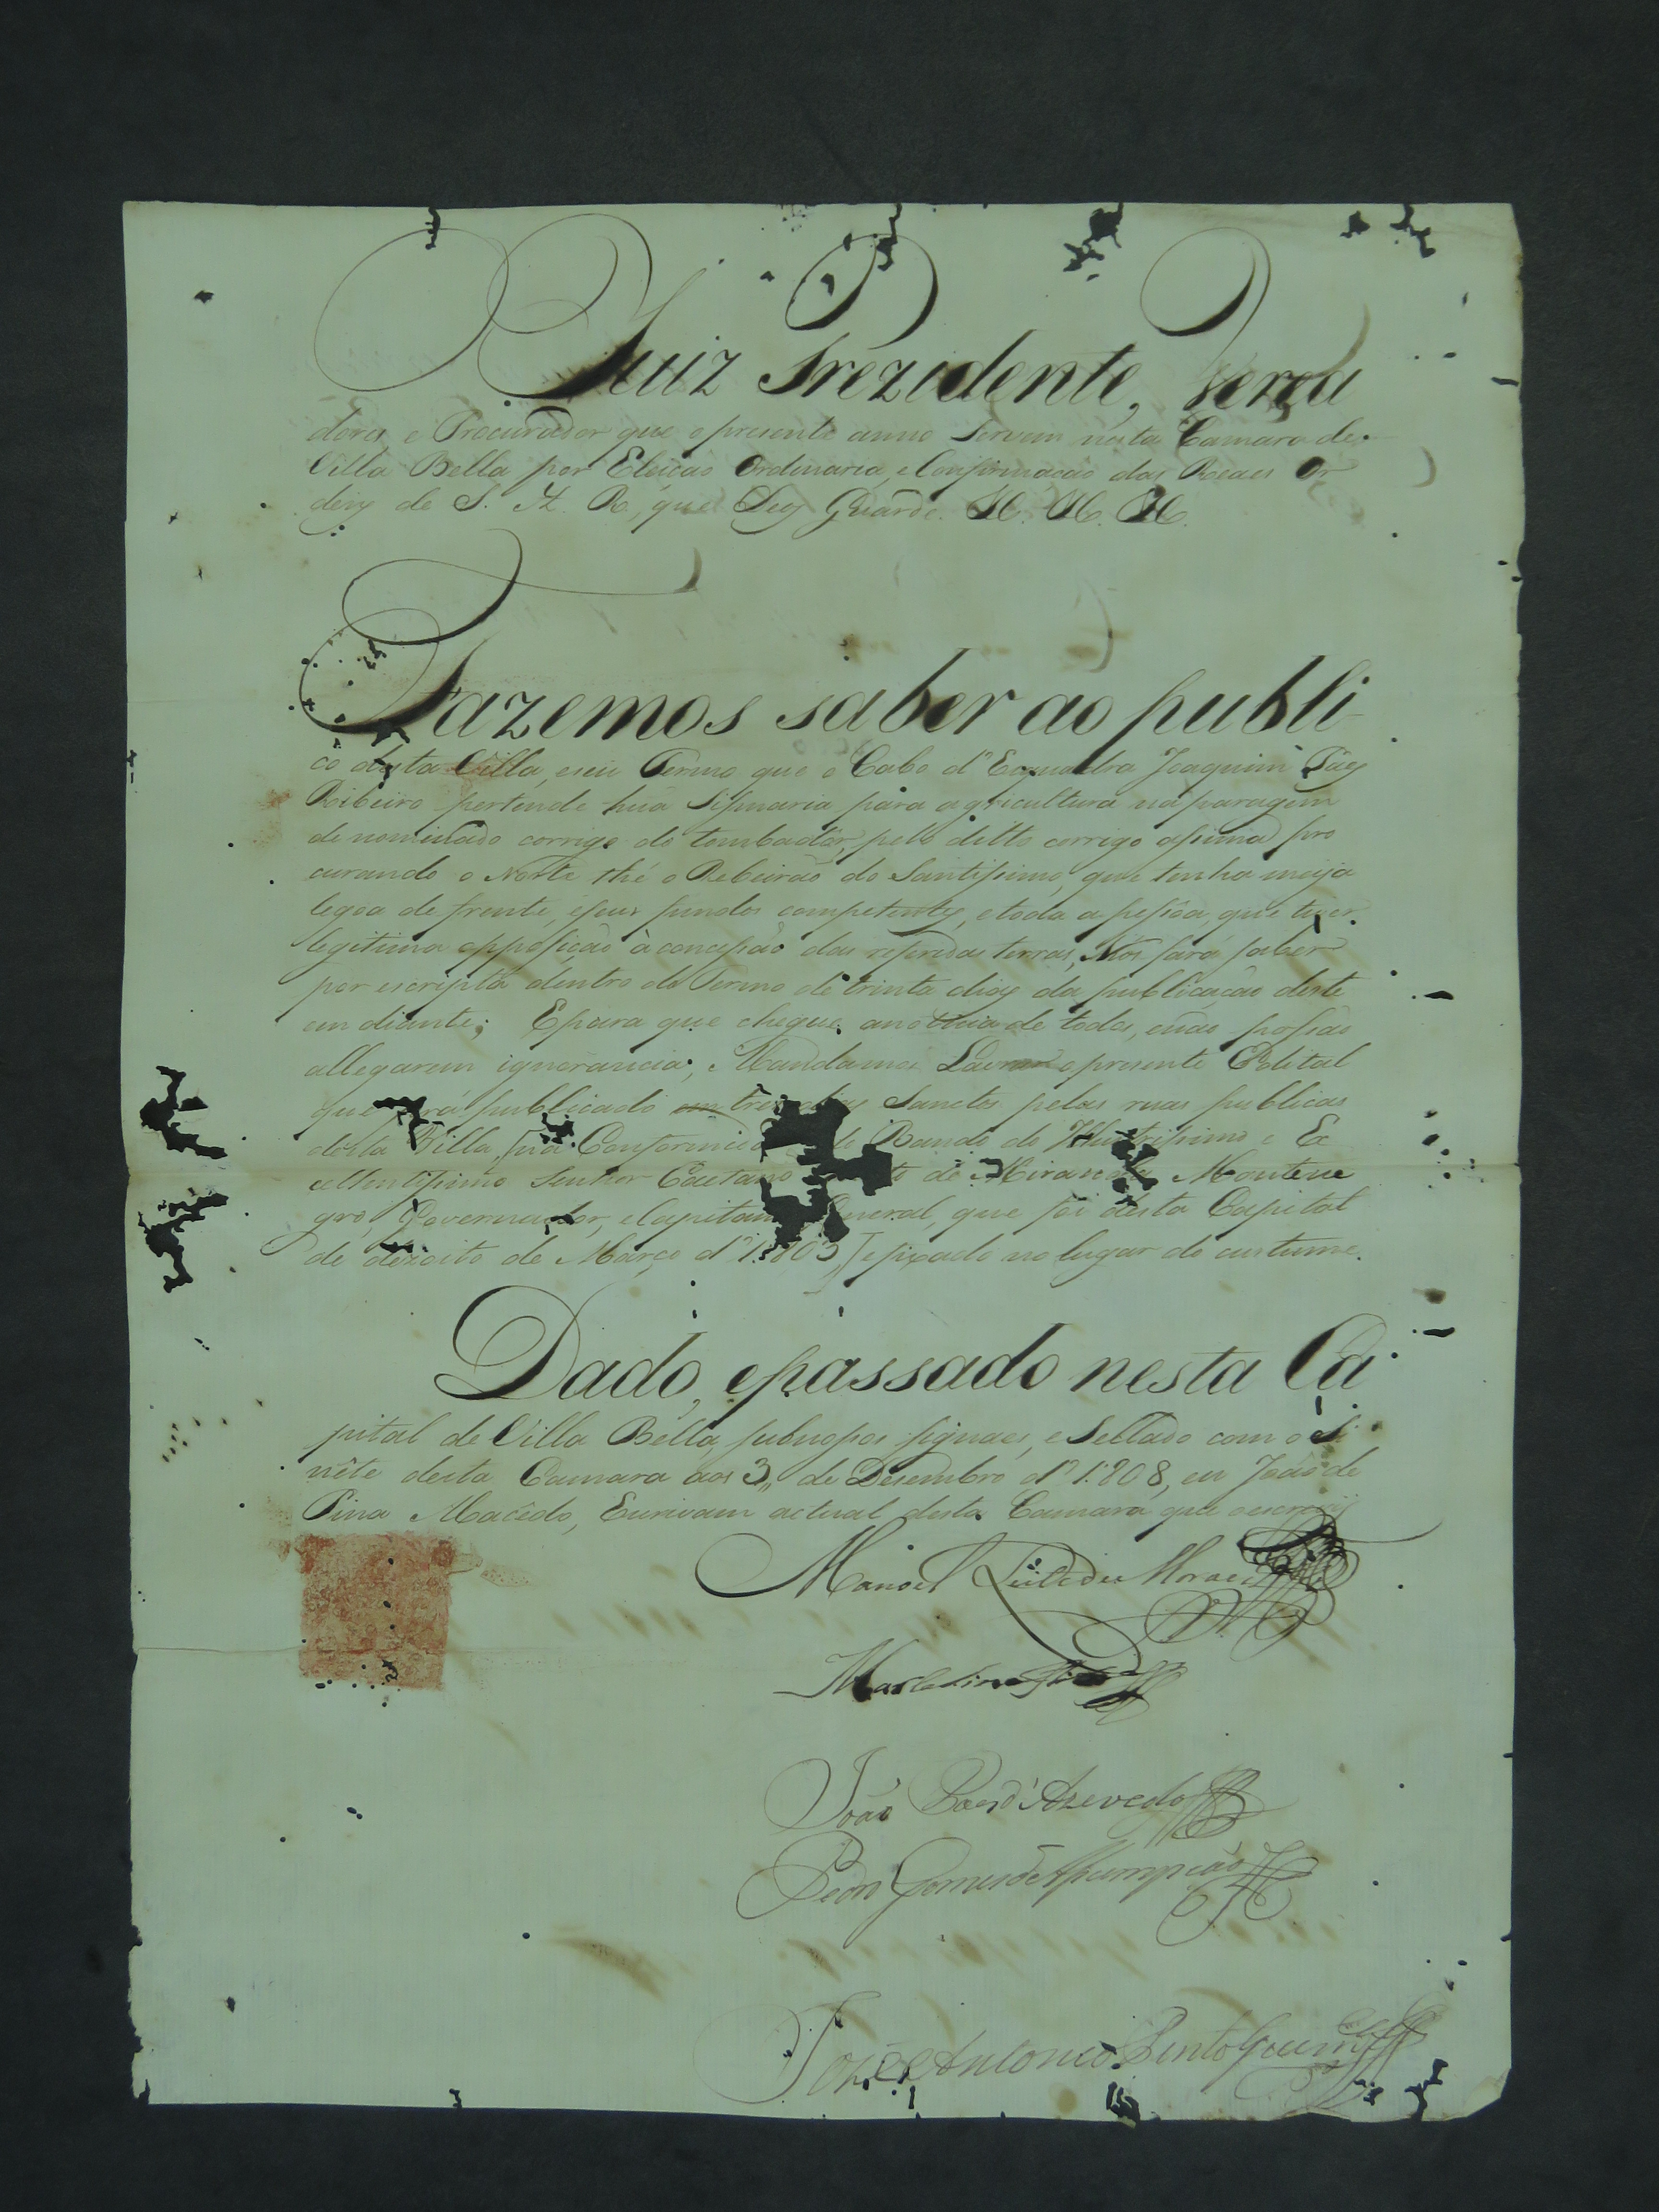 Juiz Prezidente, Verea
dores e Procurador que o presente anno servem nesta Camara de
Villa Bella por Eleicão Ordinaria, e Confirmacão das Reaes Or
deiz de S. A. R., que Deos Guarde. &c. &c. &c.
Fazemos saber ao publi
co desta Villa, e seu Termo que o Cabo d'Esquadra Joaquim
Ribeiro pertende húa Sismaria para agricultura na paragem
denominado corrigo do tombador, pello ditto corrigo assima pro
curando o Norte thé o Rebeirão do Santissimo, que tenha meija
legoa de frente, e seus fundos competentes, e toda a pessôa, que tiver
legitima opposição à concessão das referidas terras, Nos fará saber
por escripta dentro do Termo de trinta dias da publicacão deste
em diante; E para que chegue a noticia de todos, e não possão
allegarem ignorancia; Mandamos Lavrar o presente Edital
que será publicado em tres dias Sanctos pelas ruas publicas
desta Villa, [na Conformid de Bando do Illustrissimo e Ex
cellentissimo Senhor Caetano to de Miranda Montene
gro, Governador, e Capitam General, que foi desta Capital
de dezoito de Março d'1.803,] e fixado no lugar do custume.
Dado, e passado nesta Ca
pital de Villa Bella, sub nossos signaes, e Sellado com o Si
nête desta Camara aos 3,, de Desembro d'1.808, eu João de
Pina Macêdo, Escrivam actual desta Camara que o escrevij
Manoel Leite de Moraes
João Paes d'Azevedo
Pedro Gomes de Assumpção
José Antonio Pinto Gomes